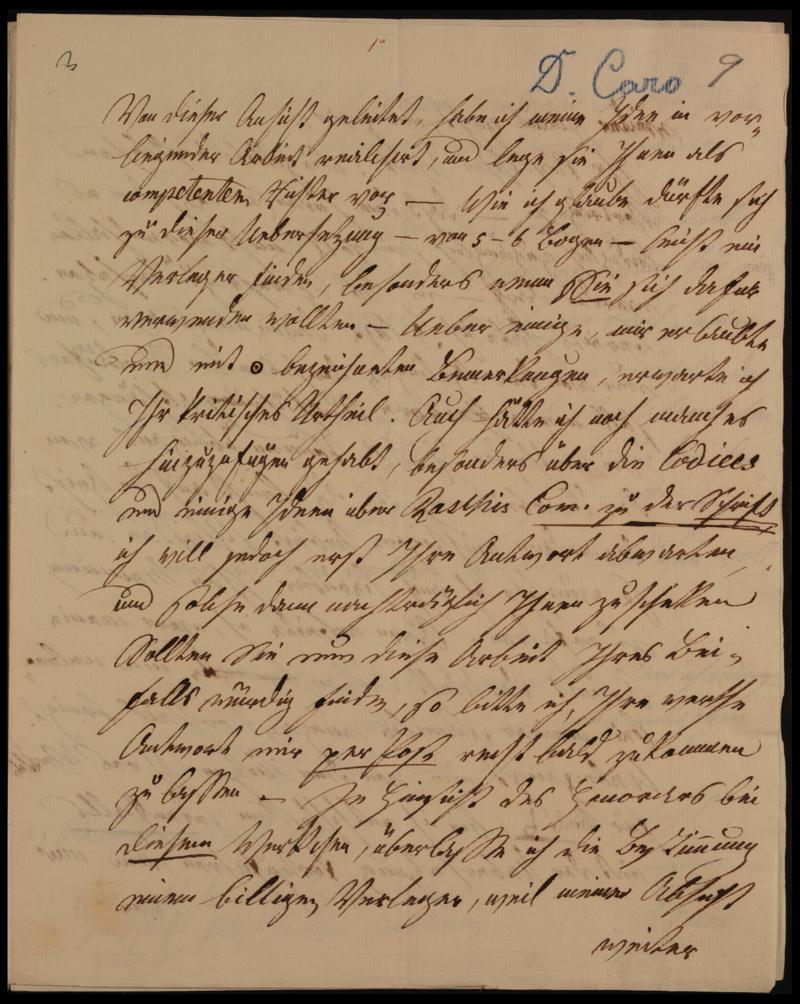 3
1"
D. Caro 9
Von dieser Ansicht geleitet, habe ich meine Idee in vor„
liegender Arbeit realisirt, und lege sie Ihnen als
competenten Richter vor — Wie ich glaube dürfte sich
zu dieser Uebersetzung — von 5–6 Bogen — leicht ein
Verleger finden, besonders wenn Sie sich dafür
verwenden wollten — Ueber einige, mir erlaubte
und mit ⊙ bezeichneten Bemerkungen, erwarte ich
Ihr kritisches Urtheil. Auch hätte ich noch manches
hinzuzufügen gehabt, besonders über die Codices
und einige Ideen über Raschis Com. zu der Schrift
ich will jedoch erst Ihre Antwort abwarten,
und solche dann nachträglich Ihnen zuschicken
Sollten Sie nun diese Arbeit Ihres Bei„
falls würdig finden, so bitte ich, Ihre werthe
Antwort mir per Post recht bald zukommen
zu lassen — In Hinsicht des Honorars bei
diesem Werkchen, überlasse ich die Bestimmung
einem billigen Verleger, weil meine Absicht
weiter